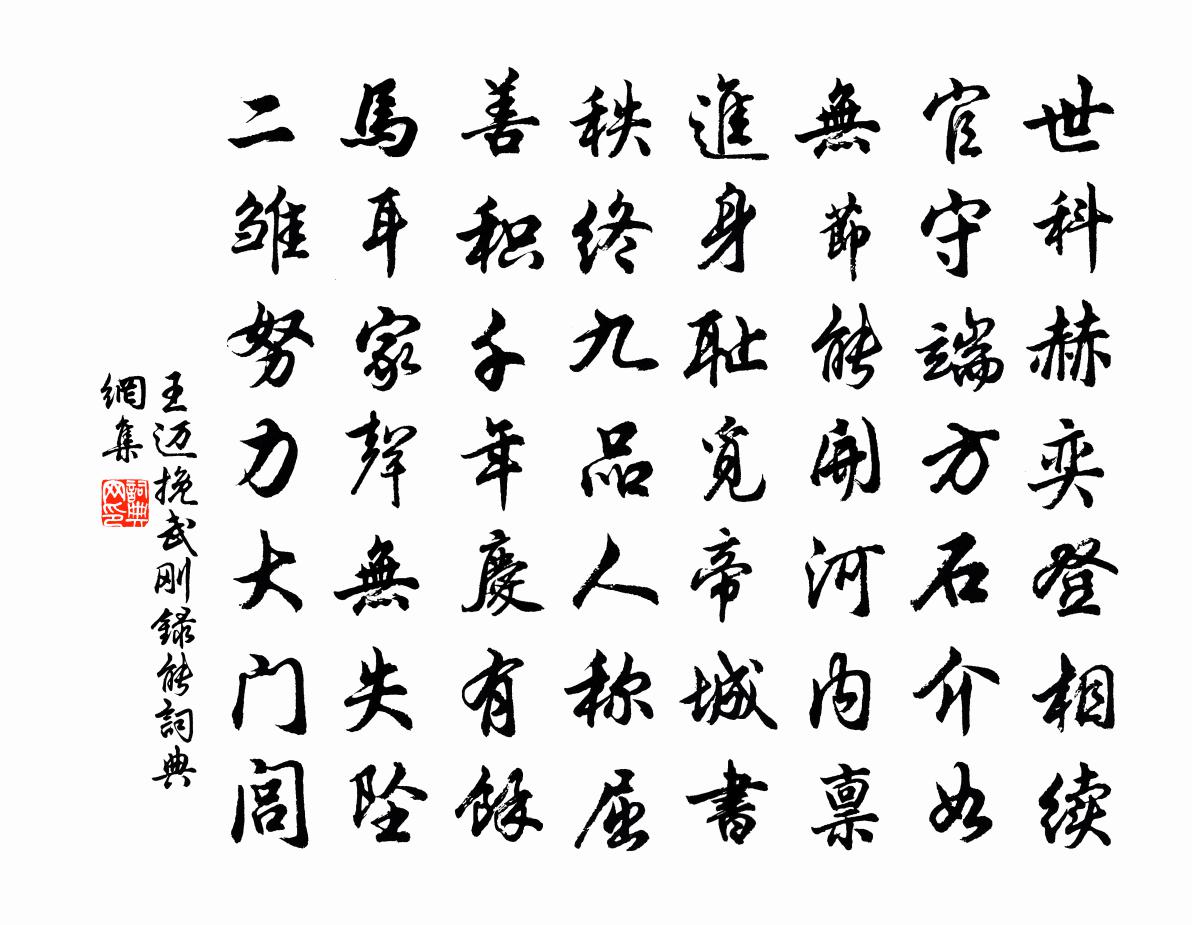 世科赫奕登相续
官守端方石介如
無節能開河内禀
進身耻覓帝城書
秩終九品人称屈
善积千年慶有餘
馬耳家聲無失坠
二雏努力大门闾
王迈挽武刚録能詞典
網集
詞典网印